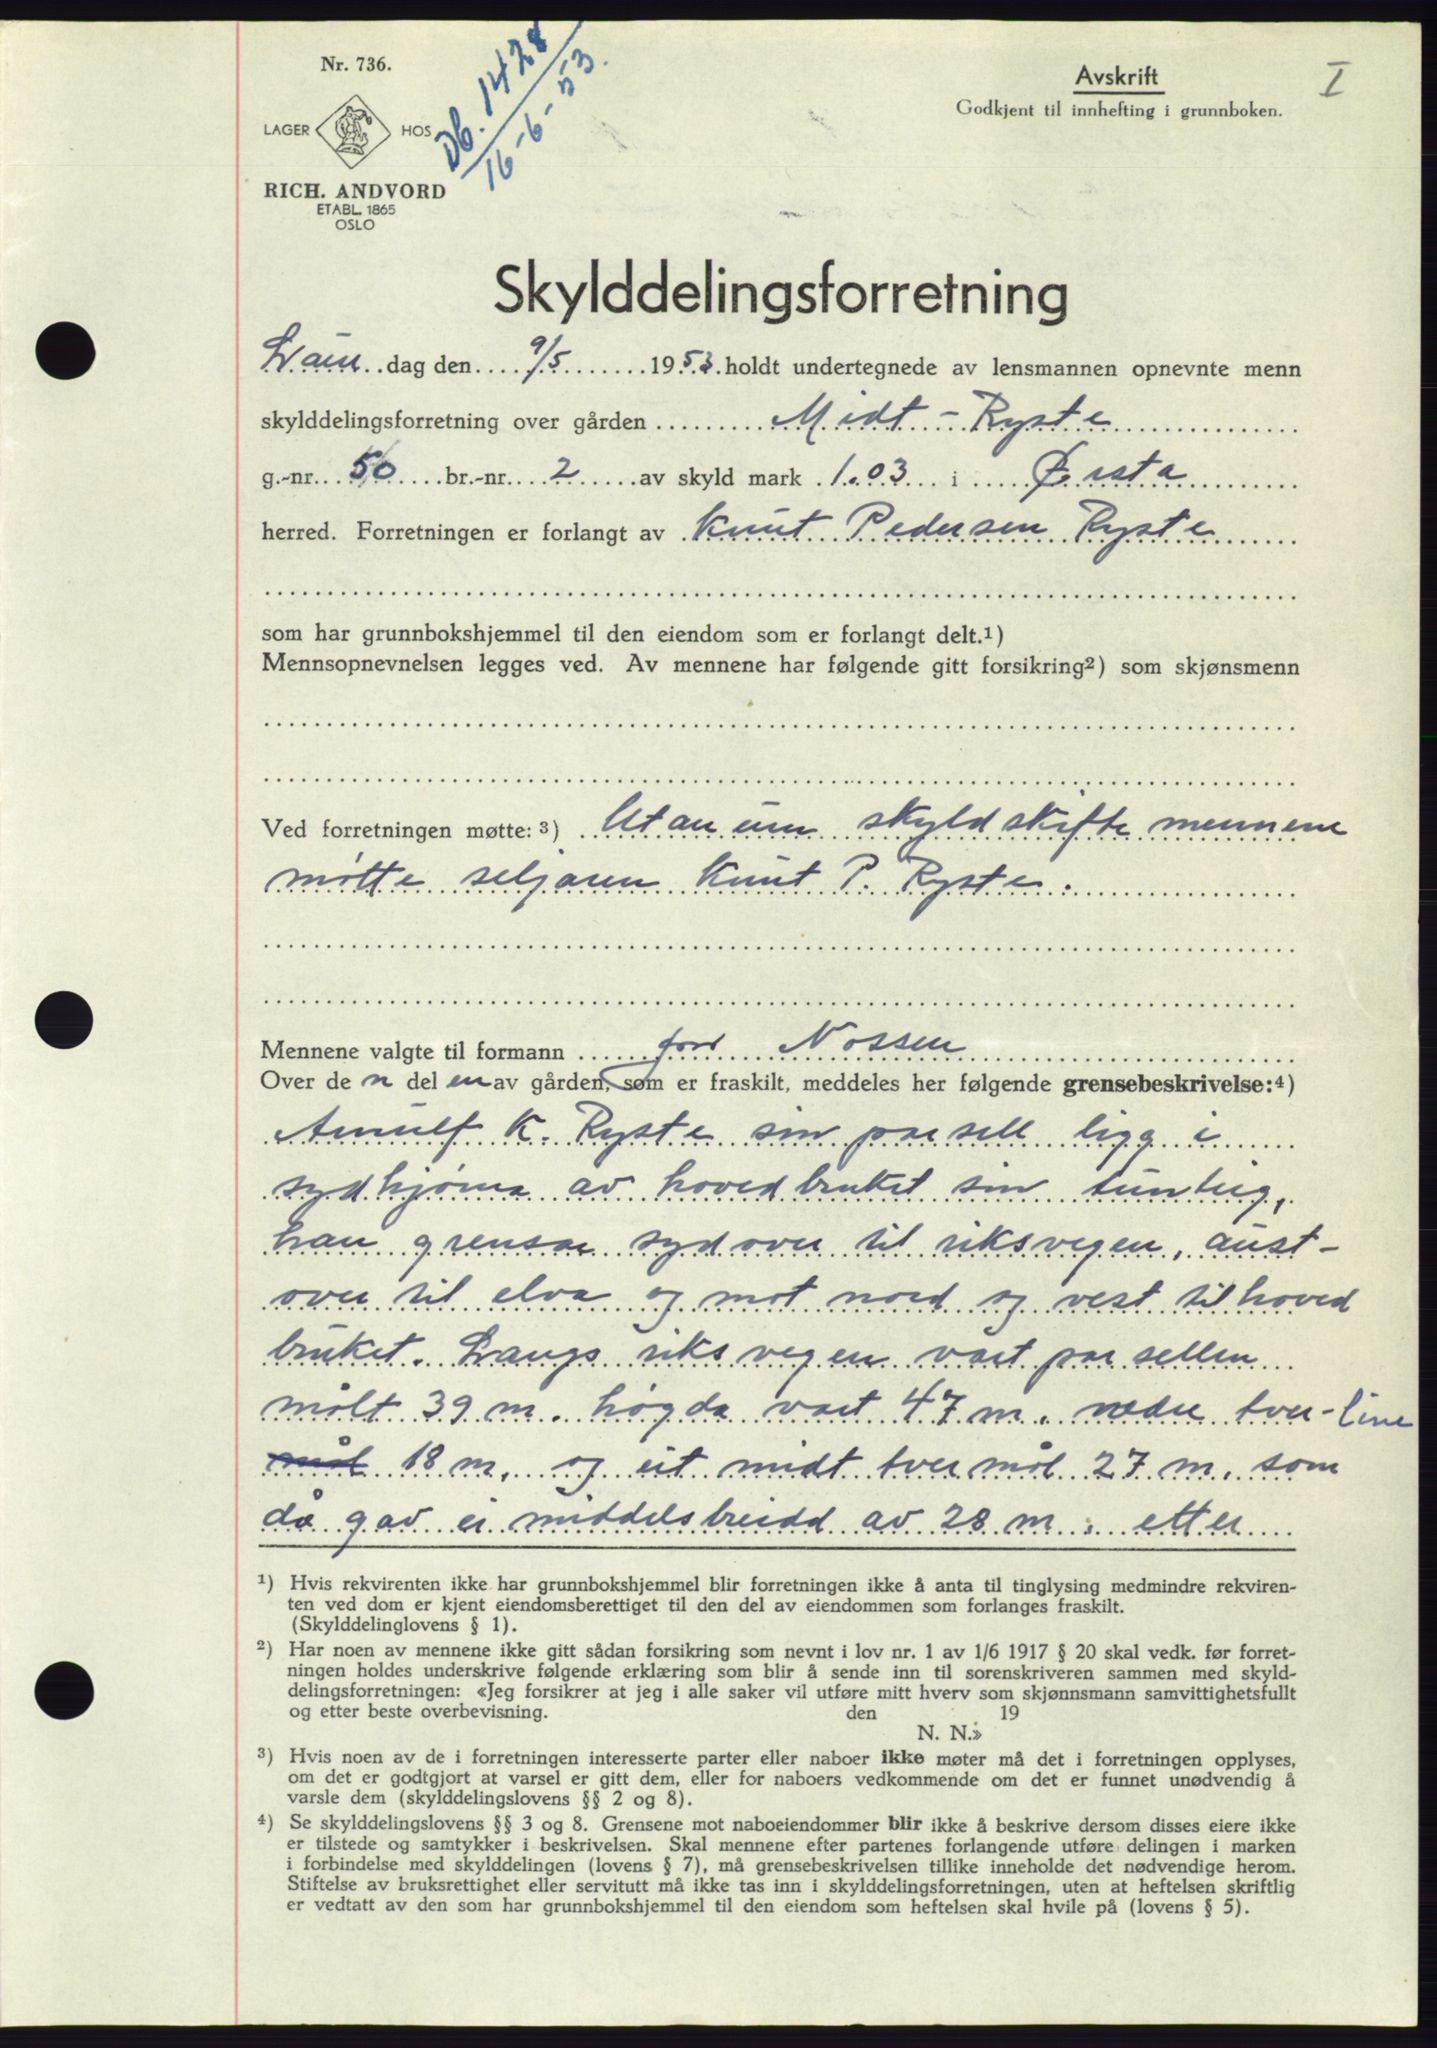 Nr. 736.
Db. 1428
16-6-53.
Avskrift
I
Godkjent til innhefting i grunnboken.
LAGER HOS
RICH. ANDVORD
ETABL. 1865
OSLO
Skylddelingsforretning
Laur dag den 9/5 1953 holdt undertegnede av lensmannen opnevnte menn
skylddelingsforretning over gården Midt-Ryste
g.-nr. 50 br.-nr. 2 av skyld mark 1.03 i Ørsta
herred. Forretningen er forlangt av Knut Pedersen Ryste
som har grunnbokshjemmel til den eiendom som er forlangt delt.¹)
Mennsopnevnelsen legges ved. Av mennene har følgende gitt forsikring²) som skjønsmenn
Ved forretningen møtte: ³) Utan um skyldskiftemennene
møtte seljaren Knut P. Ryste.
Mennene valgte til formann Jon Nossen
Over de n del en av gården, som er fraskilt, meddeles her følgende grensebeskrivelse: ⁴)
Arnulf K. Ryste sin parsell ligg i
sydhjørna av hovedbruket sin tunteig,
han grensar sydover til riksvegen, aust-
over til elva og mot nord og vest til hoved
bruket. Langs riksvegen vart parsellen
målt 39 m. høgda vart 47 m. nedre tver-line
mål 18 m. og eit midt tvermål 27 m. som
då gav ei middelsbreidd av 28 m. etter
¹) Hvis rekvirenten ikke har grunnbokshjemmel blir forretningen ikke å anta til tinglysing medmindre rekviren-
ten ved dom er kjent eiendomsberettiget til den del av eiendommen som forlanges fraskilt.
(Skylddelinglovens § 1).
²) Har noen av mennene ikke gitt sådan forsikring som nevnt i lov nr. 1 av 1/6 1917 § 20 skal vedk. før forret-
ningen holdes underskrive følgende erklæring som blir å sende inn til sorenskriveren sammen med skyld-
delingsforretningen: «Jeg forsikrer at jeg i alle saker vil utføre mitt hverv som skjønnsmann samvittighetsfullt
og etter beste overbevisning. den 19
N. N.»
³) Hvis noen av de i forretningen interesserte parter eller naboer ikke møter må det i forretningen opplyses,
om det er godtgjort at varsel er gitt dem, eller for naboers vedkommende om det er funnet unødvendig å
varsle dem (skylddelingslovens §§ 2 og 8).
⁴) Se skylddelingslovens §§ 3 og 8. Grensene mot naboeiendommer blir ikke å beskrive dersom disses eiere ikke
er tilstede og samtykker i beskrivelsen. Skal mennene efter partenes forlangende utføre delingen i marken
i forbindelse med skylddelingen (lovens § 7), må grensebeskrivelsen tillike inneholde det nødvendige herom.
Stiftelse av bruksrettighet eller servitutt må ikke tas inn i skylddelingsforretningen, uten at heftelsen skriftlig
er vedtatt av den som har grunnbokshjemmel til den eiendom som heftelsen skal hvile på (lovens § 5).